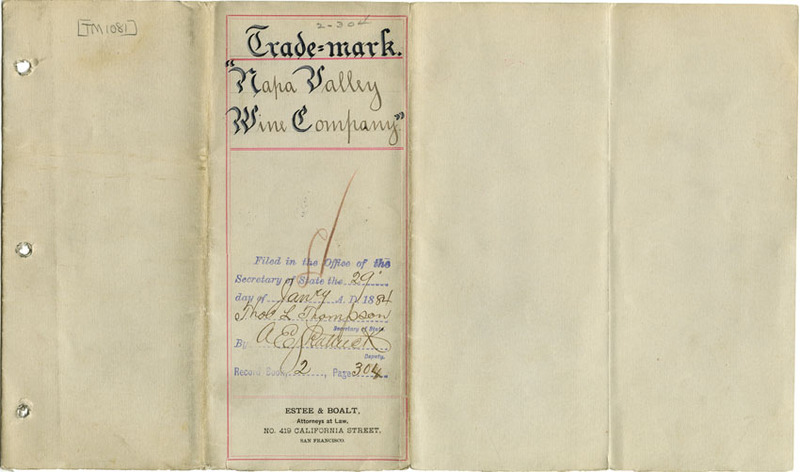 [TM1081]
2-304
Trade=mark.
"Napa Valley
Wine Company"
Filed in the Office of the
Secretary of State the 29"
day of Jany A. D. 1884
Thos L Thompson
Secretary of State.
By
Deputy.
Record Book, 2, Page 304
ESTEE & BOALT,
Attorneys at Law,
NO. 419 CALIFORNIA STREET,
SAN FRANCISCO.